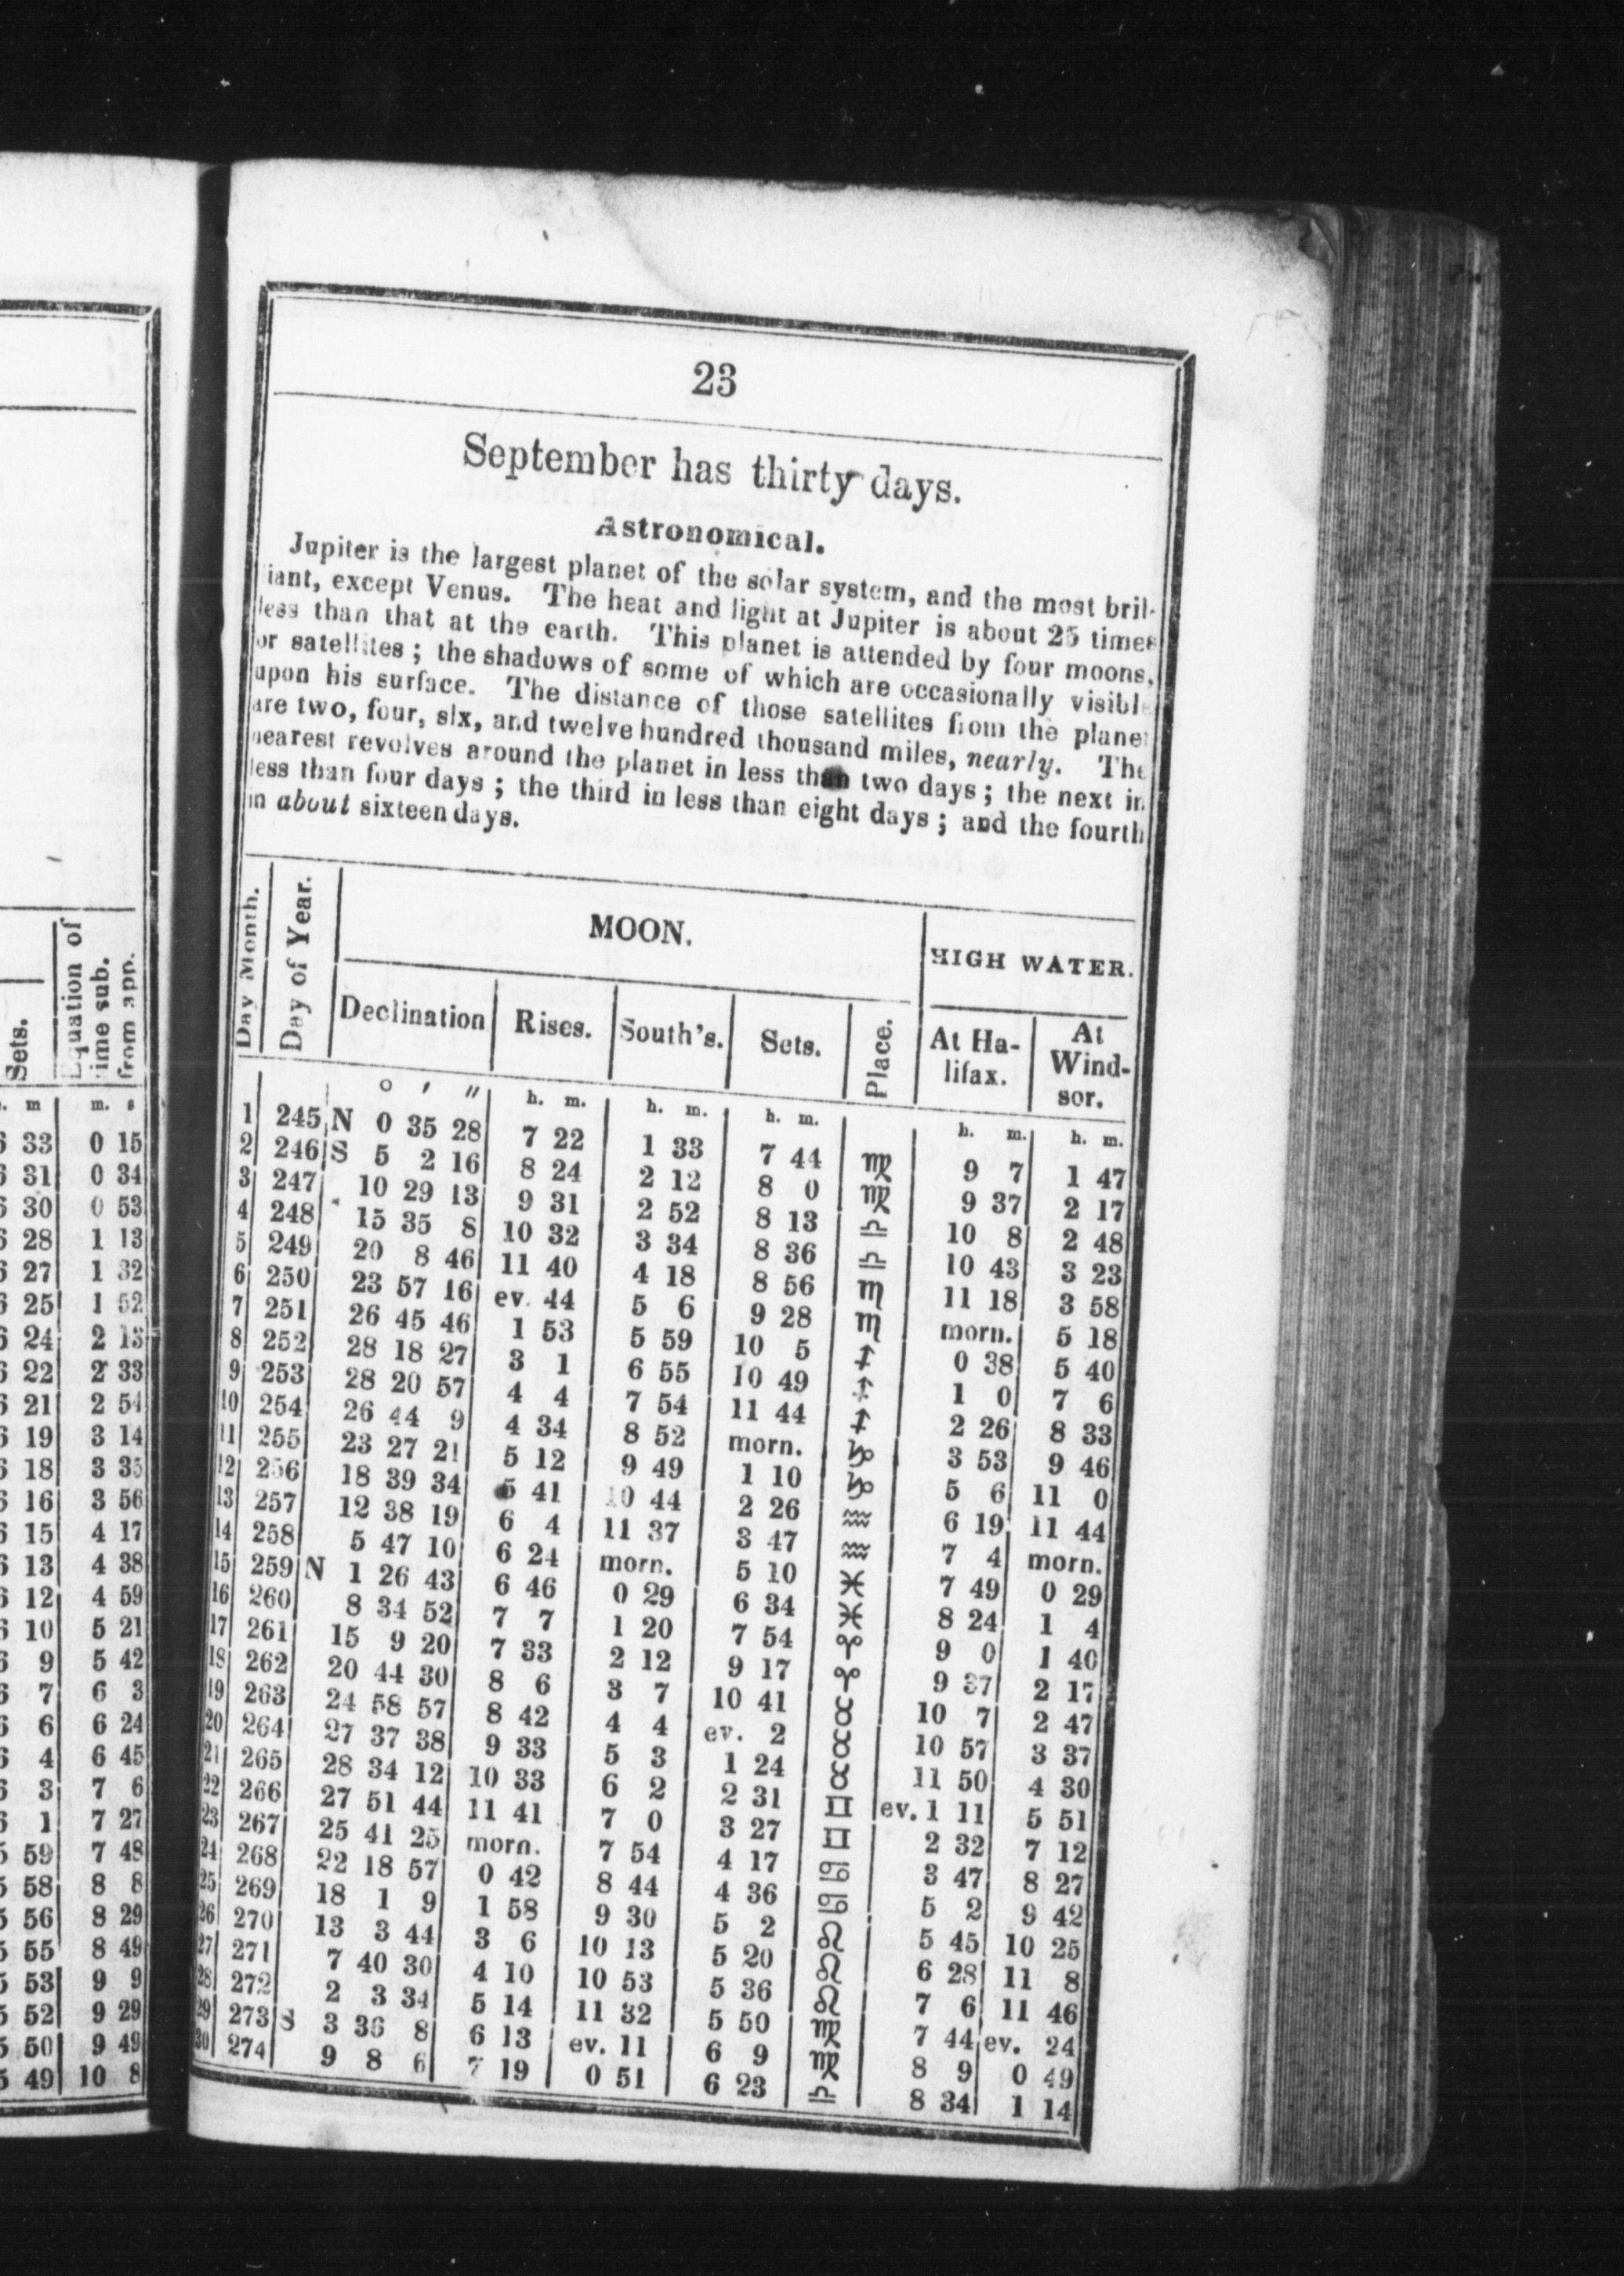 Sets.
Equation of
time sub.
from app.
m m. s
33 0 15
31 0 34
30 0 53
28 1 13
27 1 32
25 1 52
24 2 13
22 2 33
21 2 54
19 3 14
18 3 35
16 3 56
15 4 17
13 4 38
12 4 59
10 5 21
9 5 42
7 6 3
6 6 24
4 6 45
3 7 6
1 7 27
59 7 48
58 8 8
56 8 29
55 8 49
53 9 9
52 9 29
50 9 49
49 10 8
23
September has thirty days.
Astronomical.
Jupiter is the largest planet of the solar system, and the most bril-
liant, except Venus. The heat and light at Jupiter is about 25 times
less than that at the earth. This planet is attended by four moons,
or satellites; the shadows of some of which are occasionally visible
upon his surface. The distance of those satellites from the planet
are two, four, six, and twelve hundred thousand miles, nearly. The
nearest revolves around the planet in less than two days; the next in
less than four days; the third in less than eight days; and the fourth
in about sixteen days.
Day Month. Day of Year. MOON. HIGH WATER.
Declination Rises. South's. Sets. Place. At Ha-
lifax. At
Wind-
sor.
° ′ ″ h. m. h. m. h. m. h. m. h. m.
1 245 N 0 35 28 7 22 1 33 7 44 ♍ 9 7 1 47
2 246 S 5 2 16 8 24 2 12 8 0 ♍ 9 37 2 17
3 247 10 29 13 9 31 2 52 8 13 ♎ 10 8 2 48
4 248 15 35 8 10 32 3 34 8 36 ♎ 10 43 3 23
5 249 20 8 46 11 40 4 18 8 56 ♏ 11 18 3 58
6 250 23 57 16 ev. 44 5 6 9 28 ♏ morn. 5 18
7 251 26 45 46 1 53 5 59 10 5 ♐ 0 38 5 40
8 252 28 18 27 3 1 6 55 10 49 ♐ 1 0 7 6
9 253 28 20 57 4 4 7 54 11 44 ♐ 2 26 8 33
10 254 26 44 9 4 34 8 52 morn. ♑ 3 53 9 46
11 255 23 27 21 5 12 9 49 1 10 ♑ 5 6 11 0
12 256 18 39 34 5 41 10 44 2 26 ♒ 6 19 11 44
13 257 12 38 19 6 4 11 37 3 47 ♒ 7 4 morn.
14 258 5 47 10 6 24 morn. 5 10 ♓ 7 49 0 29
15 259 N 1 26 43 6 46 0 29 6 34 ♓ 8 24 1 4
16 260 8 34 52 7 7 1 20 7 54 ♈ 9 0 1 40
17 261 15 9 20 7 33 2 12 9 17 ♈ 9 37 2 17
18 262 20 44 30 8 6 3 7 10 41 ♉ 10 7 2 47
19 263 24 58 57 8 42 4 4 ev. 2 ♉ 10 57 3 37
20 264 27 37 38 9 33 5 3 1 24 ♉ 11 50 4 30
21 265 28 34 12 10 33 6 2 2 31 ♊ ev. 1 11 5 51
22 266 27 51 44 11 41 7 0 3 27 ♊ 2 32 7 12
23 267 25 41 25 morn. 7 54 4 17 ♋ 3 47 8 27
24 268 22 18 57 0 42 8 44 4 36 ♋ 5 2 9 42
25 269 18 1 9 1 58 9 30 5 2 ♌ 5 45 10 25
26 270 13 3 44 3 6 10 13 5 20 ♌ 6 28 11 8
27 271 7 40 30 4 10 10 53 5 36 ♌ 7 6 11 46
28 272 2 3 34 5 14 11 32 5 50 ♍ 7 44 ev. 24
29 273 S 3 36 8 6 13 ev. 11 6 9 ♍ 8 9 0 49
30 274 9 8 6 7 19 0 51 6 23 ♎ 8 34 1 14